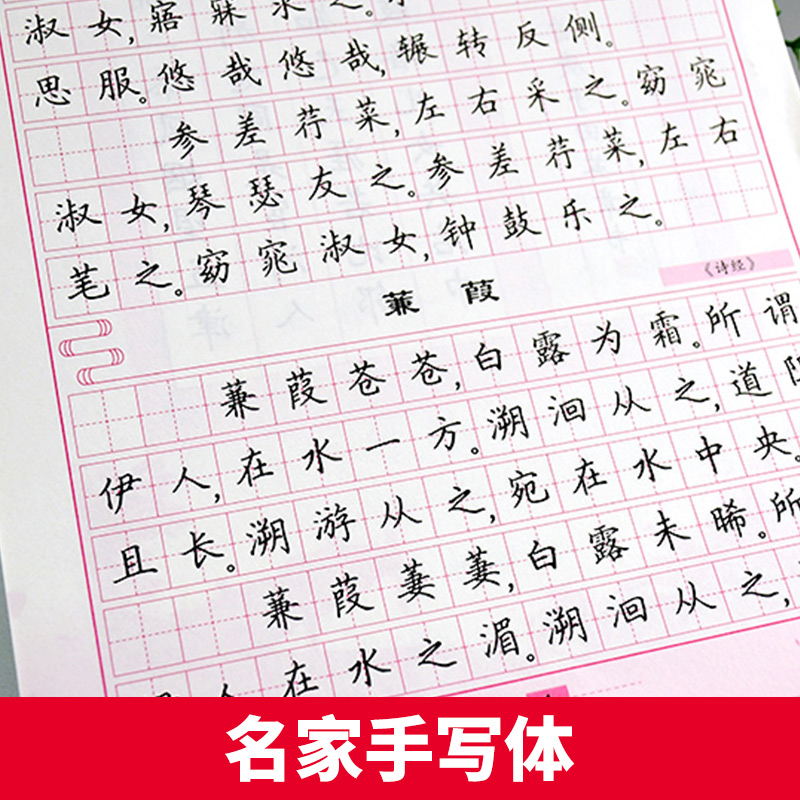 淑女,寤寐求之。
思服。悠哉悠哉,辗转反侧。
参差荇菜,左右采之。窈窕
淑女,琴瑟友之。参差荇菜,左右
芼之。窈窕淑女,钟鼓乐之。
《诗经》
蒹葭
蒹葭苍苍,白露为霜。所谓
伊人,在水一方。溯洄从之,道阻
且长。溯游从之,宛在水中央。
蒹葭萋萋,白露未晞。所
人在水之湄。溯洄从之,
名家手写体